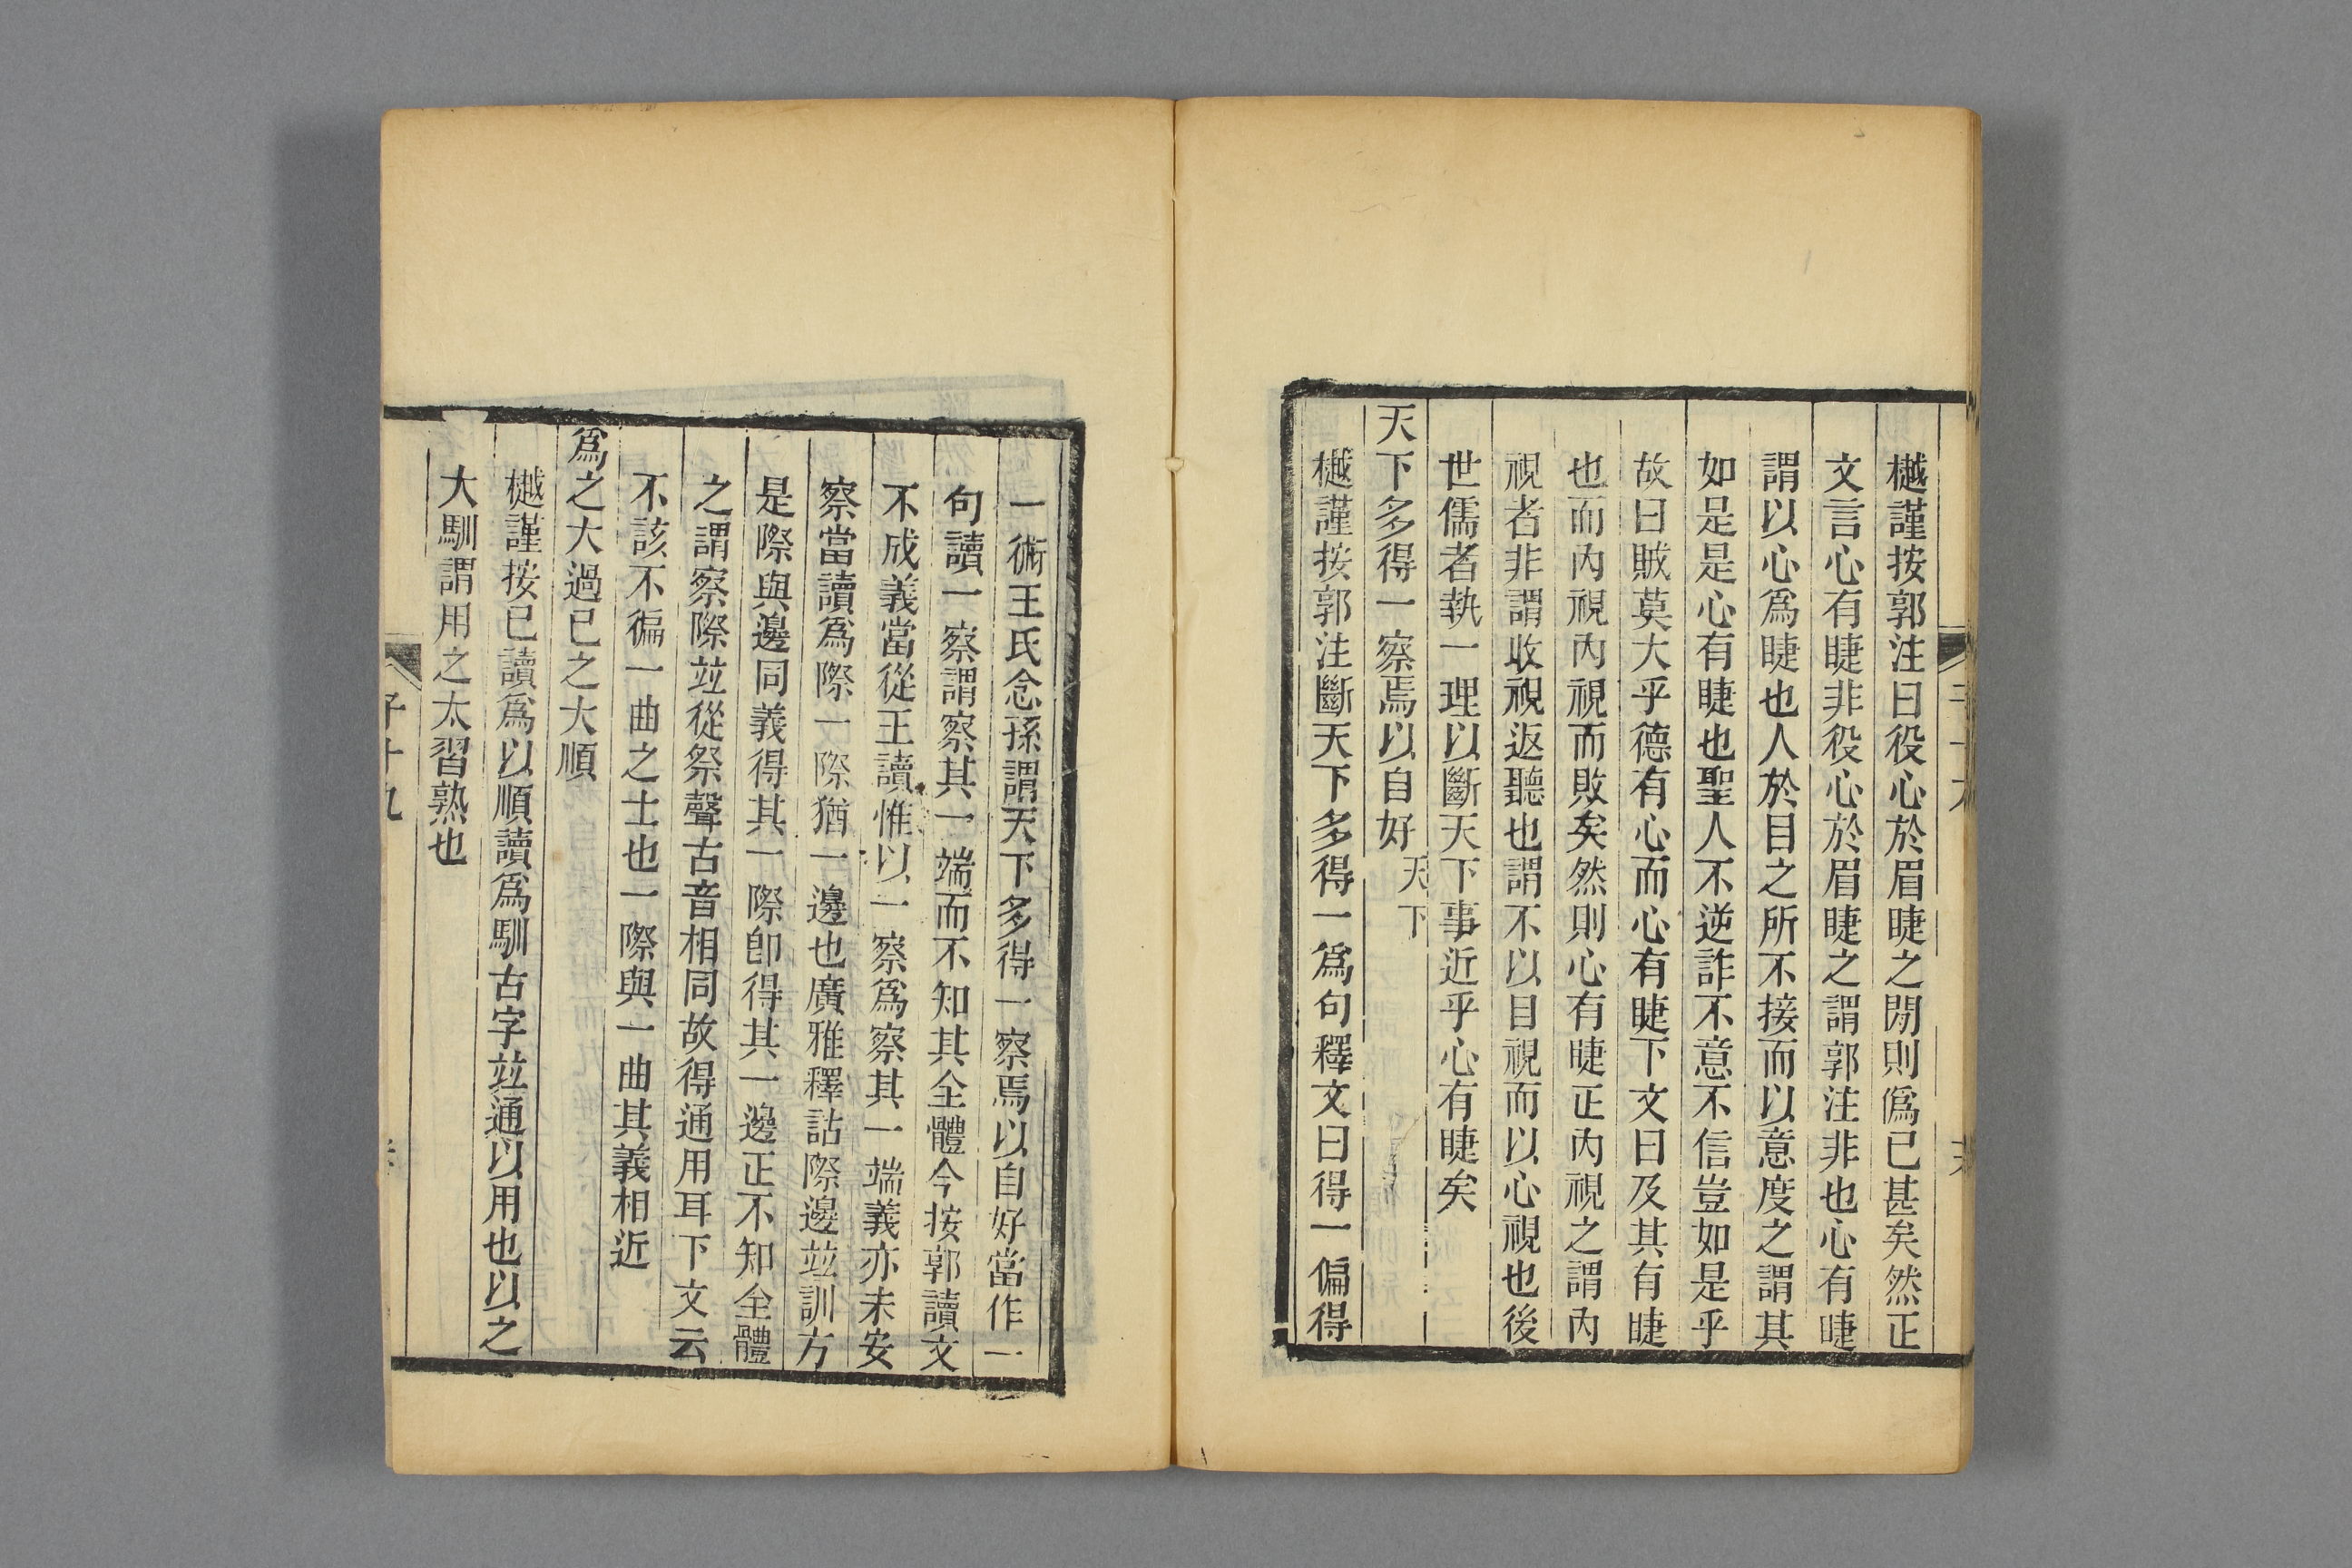 樾謹按郭注曰役心於眉睫之閒則僞已甚矣然正
文言心有睫非役心於眉睫之謂郭注非也心有睫
謂以心爲睫也人於目之所不接而以意度之謂其
如是是心有睫也聖人不逆詐不意不信豈如是乎
故曰賊莫大乎德有心而心有睫下文曰及其有睫
也而內視內視而敗矣然則心有睫正內視之謂內
視者非謂收視返聽也謂不以目視而以心視也後
世儒者執一理以斷天下事近乎心有睫矣
天下多得一察焉以自好天下
樾謹按郭注斷天下多得一爲句釋文曰得一偏得
一術王氏念孫謂天下多得一察焉以自好當作一
句讀一察謂察其一端而不知其全體今按郭讀文
不成義當從王讀惟以一察爲察其一端義亦未安
察當讀爲際一際猶一邊也廣雅釋詁際邊竝訓方
是際與邊同義得其一際卽得其一邊正不知全體
之謂察際竝從祭聲古音相同故得通用耳下文云
不該不徧一曲之士也一際與一曲其義相近
爲之大過已之大順
樾謹按已讀爲以順讀爲馴古字竝通以用也以之
大馴謂用之太習熟也
子十九